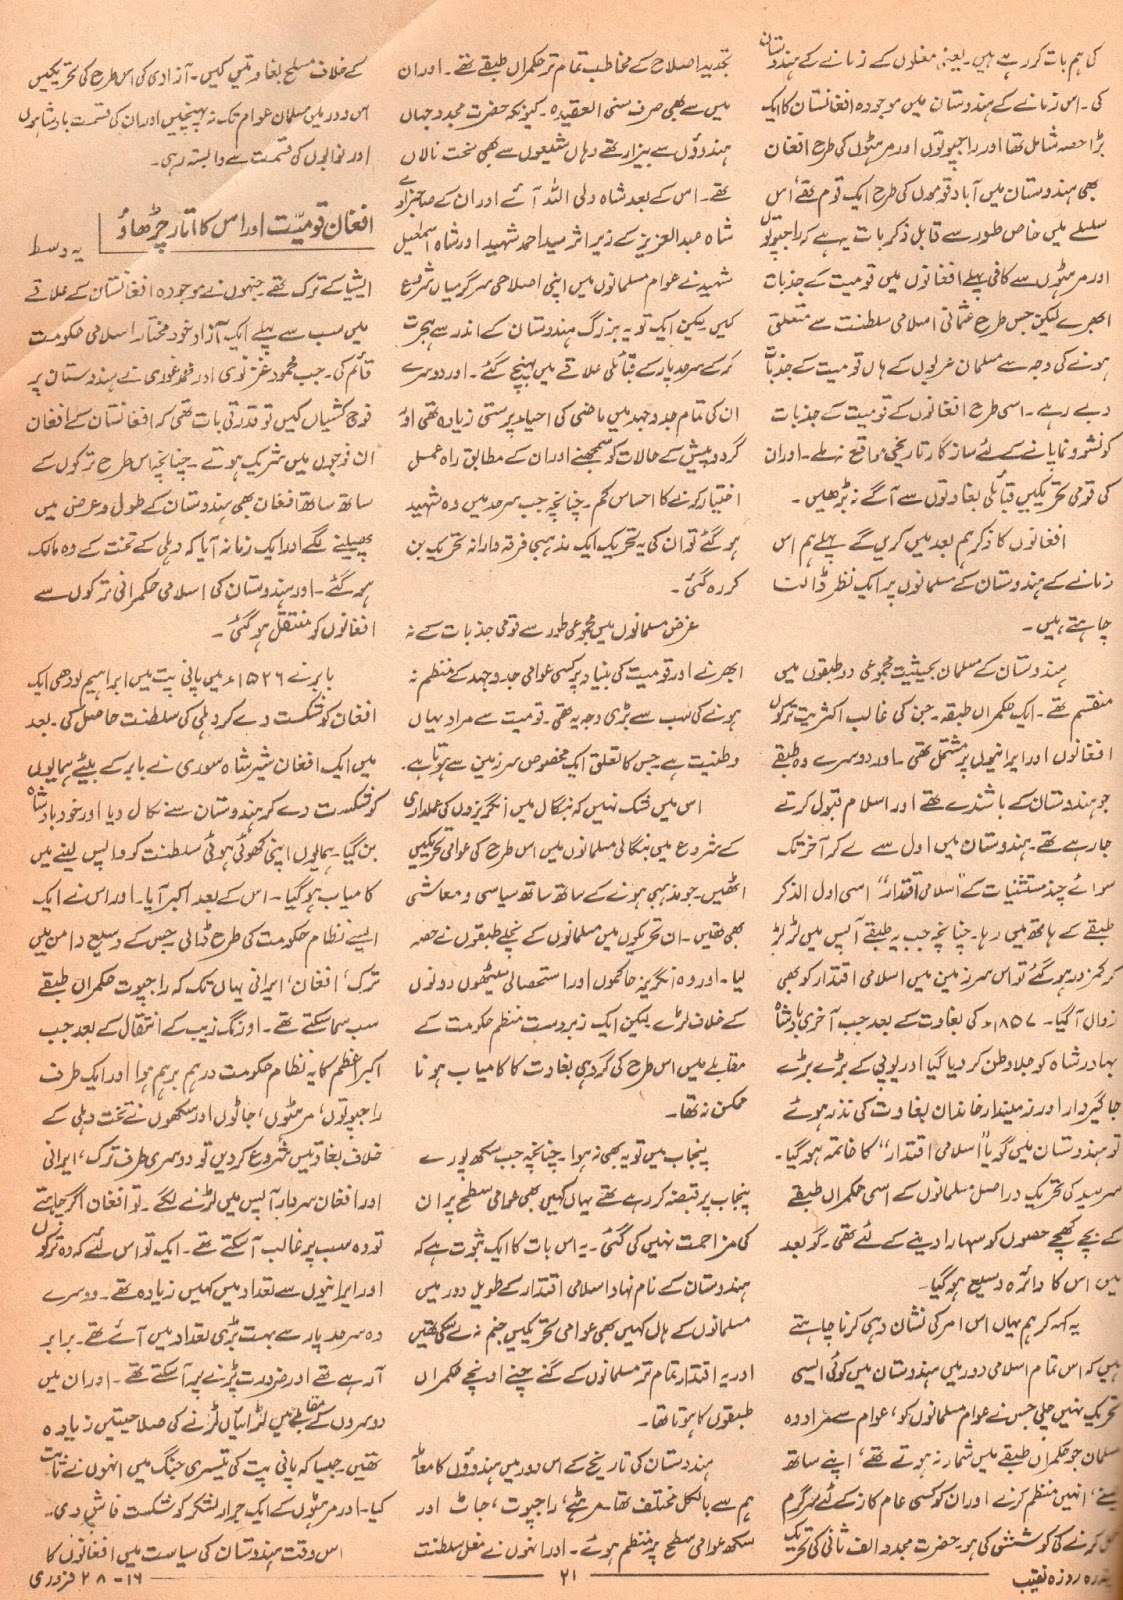 کی ہم بات کر رہے ہیں۔ یعنی مغلوں کے زمانے کے ہندوستان
کی۔ اس زمانے کے ہندوستان میں موجودہ افغانستان کا ایک
بڑا حصہ شامل تھا اور راجپوتوں اور مرہٹوں کی طرح افغان
بھی ہندوستان میں آباد قوموں کی طرح ایک قوم تھے، اس
سلسلے میں خاص طور سے قابل ذکر بات یہ ہے کہ راجپوتوں
اور مرہٹوں سے کافی پہلے افغانوں میں قومیت کے جذبات
ابھرے لیکن جس طرح عثمانی اسلامی سلطنت سے متعلق
ہونے کی وجہ سے مسلمان عربوں کے ہاں قومیت کے جذبات
دبے رہے۔ اسی طرح افغانوں کے قومیت کے جذبات
کو نشوونما پانے کے لئے سازگار تاریخی مواقع نہ ملے۔ اور ان
کی قومی تحریکیں قبائلی بغاوتوں سے آگے نہ بڑھیں۔
افغانوں کا ذکر ہم بعد میں کریں گے پہلے ہم اس
زمانے کے ہندوستان کے مسلمانوں پر ایک نظر ڈالنا
چاہتے ہیں۔
ہندوستان کے مسلمان بحیثیت مجموعی دو طبقوں میں
منقسم تھے۔ ایک حکمراں طبقہ۔ جن کی غالب اکثریت ترکوں
افغانوں اور ایرانیوں پر مشتمل تھی۔ اور دوسرے وہ طبقے
جو ہندوستان کے باشندے تھے اور اسلام قبول کرتے
جا رہے تھے۔ ہندوستان میں اول سے لے کر آخر تک
سوائے چند مستثنیات کے "اسلامی اقتدار" اسی اول الذکر
طبقے کے ہاتھ میں رہا۔ چنانچہ جب یہ طبقے آپس میں لڑ لڑ
کر کمزور ہو گئے تو اس سرزمین میں اسلامی اقتدار کو بھی
زوال آگیا۔ ۱۸۵۷ء کی بغاوت کے بعد جب آخری بادشاہ
بہادر شاہ کو جلاوطن کر دیا گیا اور یوپی کے بڑے بڑے
جاگیردار اور زمیندار خاندان بغاوت کی نذر ہوئے
تو ہندوستان میں گویا "اسلامی اقتدار" کا خاتمہ ہو گیا۔
سرسید کی تحریک دراصل مسلمانوں کے اسی حکمراں طبقے
کے بچے کھچے حصوں کو سہارا دینے کے لئے تھی۔ گو بعد
میں اس کا دائرہ وسیع ہو گیا۔
یہ کہہ کر ہم یہاں اس امر کی نشان دہی کرنا چاہتے
ہیں کہ اس تمام اسلامی دور میں ہندوستان میں کوئی ایسی
تحریک نہیں چلی جس نے عوام مسلمانوں کو، عوام سے مراد وہ
مسلمان جو حکمراں طبقے میں شمار نہ ہوتے تھے، اپنے ساتھ
انہیں منظم کرنے اور ان کو کسی عام کاز کے لئے سرگرم
کرنے کی کوشش کی ہو۔ حضرت مجدد الف ثانی کی تحریک
تجدید و اصلاح کے مخاطب تمام تر حکمراں طبقے تھے۔ اور ان
میں سے بھی صرف سنی العقیدہ۔ کیونکہ حضرت مجدد جہاں
ہندوؤں سے بیزار تھے وہاں شیعوں سے بھی سخت نالاں
تھے۔ اس کے بعد شاہ ولی اللہ آئے اور ان کے صاحبزادے
شاہ عبدالعزیز کے زیر اثر سید احمد شہید اور شاہ اسمٰعیل
شہید نے عوام مسلمانوں میں اپنی اصلاحی سرگرمیاں شروع
کیں لیکن ایک تو یہ بزرگ ہندوستان کے اندر سے ہجرت
کر کے سرحد پار کے قبائلی علاقے میں پہنچ گئے۔ اور دوسرے
ان کی تمام جدوجہد میں ماضی کی احیاء پرستی زیادہ تھی اور
گردوپیش کے حالات کو سمجھنے اور ان کے مطابق راہ عمل
اختیار کرنے کا احساس کم۔ چنانچہ جب سرحد میں وہ شہید
ہو گئے تو ان کی یہ تحریک ایک مذہبی فرقہ وارانہ تحریک بن
کر رہ گئی۔
غرض مسلمانوں میں مجموعی طور سے قومی جذبات کے نہ
ابھرنے اور قومیت کی بنیاد پر کسی عوامی جدوجہد کے منظم نہ
ہونے کی سب سے بڑی وجہ یہ تھی۔ قومیت سے مراد یہاں
وطنیت ہے۔ جس کا تعلق ایک مخصوص سرزمین سے ہوتا ہے۔
اس میں شک نہیں کہ بنگال میں انگریزوں کی عملداری
کے شروع میں بنگالی مسلمانوں میں اس طرح کی عوامی تحریکیں
اٹھیں۔ جو مذہبی ہونے کے ساتھ ساتھ سیاسی و معاشی
بھی تھیں۔ ان تحریکوں میں مسلمانوں کے نچلے طبقوں نے حصہ
لیا۔ اور وہ انگریز حاکموں اور استحصالی سیٹھوں دونوں
کے خلاف لڑے لیکن ایک زبردست منظم حکومت کے
مقابلے میں اس طرح کی گروہی بغاوت کا کامیاب ہونا
ممکن نہ تھا۔
پنجاب میں تو یہ بھی نہ ہوا۔ چنانچہ جب سکھ پورے
پنجاب پر قبضہ کر رہے تھے یہاں کہیں بھی عوامی سطح پر ان
کی مزاحمت نہیں کی گئی۔ یہ اس بات کا ایک ثبوت ہے کہ
ہندوستان کے نام نہاد اسلامی اقتدار کے طویل دور میں
مسلمانوں کے ہاں کہیں بھی عوامی تحریکیں جنم نہ لے سکی تھیں
اور یہ اقتدار تمام تر مسلمانوں کے گنے چنے اونچے حکمراں
طبقوں کا ہوتا تھا۔
ہندوستان کی تاریخ کے اس دور میں ہندوؤں کا معاملہ
ہم سے بالکل مختلف تھا۔ مرہٹے، راجپوت، جاٹ اور
سکھ عوامی سطح پر منظم ہوئے۔ اور انہوں نے مغل سلطنت
کے خلاف مسلح بغاوتیں کیں۔ آزادی کی اس طرح کی تحریکیں
اس دور میں مسلمان عوام تک نہ پہنچیں اور ان کی قسمت بادشاہوں
اور نوابوں کی قسمت سے وابستہ رہی۔
افغان قومیّت اور اس کا اتار چڑھاؤ
یہ وسط
ایشیا کے ترک تھے جنہوں نے موجودہ افغانستان کے علاقے
میں سب سے پہلے ایک آزاد خود مختار اسلامی حکومت
قائم کی۔ جب محمود غزنوی اور محمد غوری نے ہندوستان پر
فوج کشیاں کیں تو قدرتی بات تھی کہ افغانستان کے افغان
ان فوجوں میں شریک ہوتے۔ چنانچہ اس طرح ترکوں کے
ساتھ ساتھ افغان بھی ہندوستان کے طول و عرض میں
پھیلنے لگے اور ایک زمانہ آیا کہ دہلی کے تخت کے وہ مالک
ہو گئے۔ اور ہندوستان کی اسلامی حکمرانی ترکوں سے
افغانوں کو منتقل ہو گئی۔
بابر نے ۱۵۲۶ء میں پانی پت میں ابراہیم لودھی ایک
افغان کو شکست دے کر دہلی کی سلطنت حاصل کی۔ بعد
میں ایک افغان شیر شاہ سوری نے بابر کے بیٹے ہمایوں
کو شکست دے کر ہندوستان سے نکال دیا اور خود بادشاہ
بن گیا۔ ہمایوں اپنی کھوئی ہوئی سلطنت کو واپس لینے میں
کامیاب ہو گیا۔ اس کے بعد اکبر آیا۔ اور اس نے ایک
ایسے نظام حکومت کی طرح ڈالی جس کے وسیع دامن میں
ترک، افغان، ایرانی یہاں تک کہ راجپوت حکمراں طبقے
سب سما سکتے تھے۔ اورنگ زیب کے انتقال کے بعد جب
اکبر اعظم کا یہ نظام حکومت درہم برہم ہوا اور ایک طرف
راجپوتوں، مرہٹوں، جاٹوں اور سکھوں نے تخت دہلی کے
خلاف بغاوتیں شروع کر دیں تو دوسری طرف ترک، ایرانی
اور افغان سردار آپس میں لڑنے لگے۔ تو افغان اگر چاہتے
تو وہ سب پر غالب آ سکتے تھے۔ ایک تو اس لئے کہ وہ ترکوں
اور ایرانیوں سے تعداد میں کہیں زیادہ تھے۔ دوسرے
وہ سرحد پار سے بہت بڑی تعداد میں آئے تھے۔ برابر
آ رہے تھے اور ضرورت پڑنے پر آ سکتے تھے۔ اور ان میں
دوسروں کے مقابلے میں لڑائیاں لڑنے کی صلاحیتیں زیادہ
تھیں۔ جیسا کہ پانی پت کی تیسری جنگ میں انہوں نے ثابت
کیا۔ اور مرہٹوں کے ایک جرار لشکر کو شکست فاش دی۔
اس وقت ہندوستان کی سیاست میں افغانوں کا
پندرہ روزہ نقیب
۲۱
۱۶-۲۸ فروری